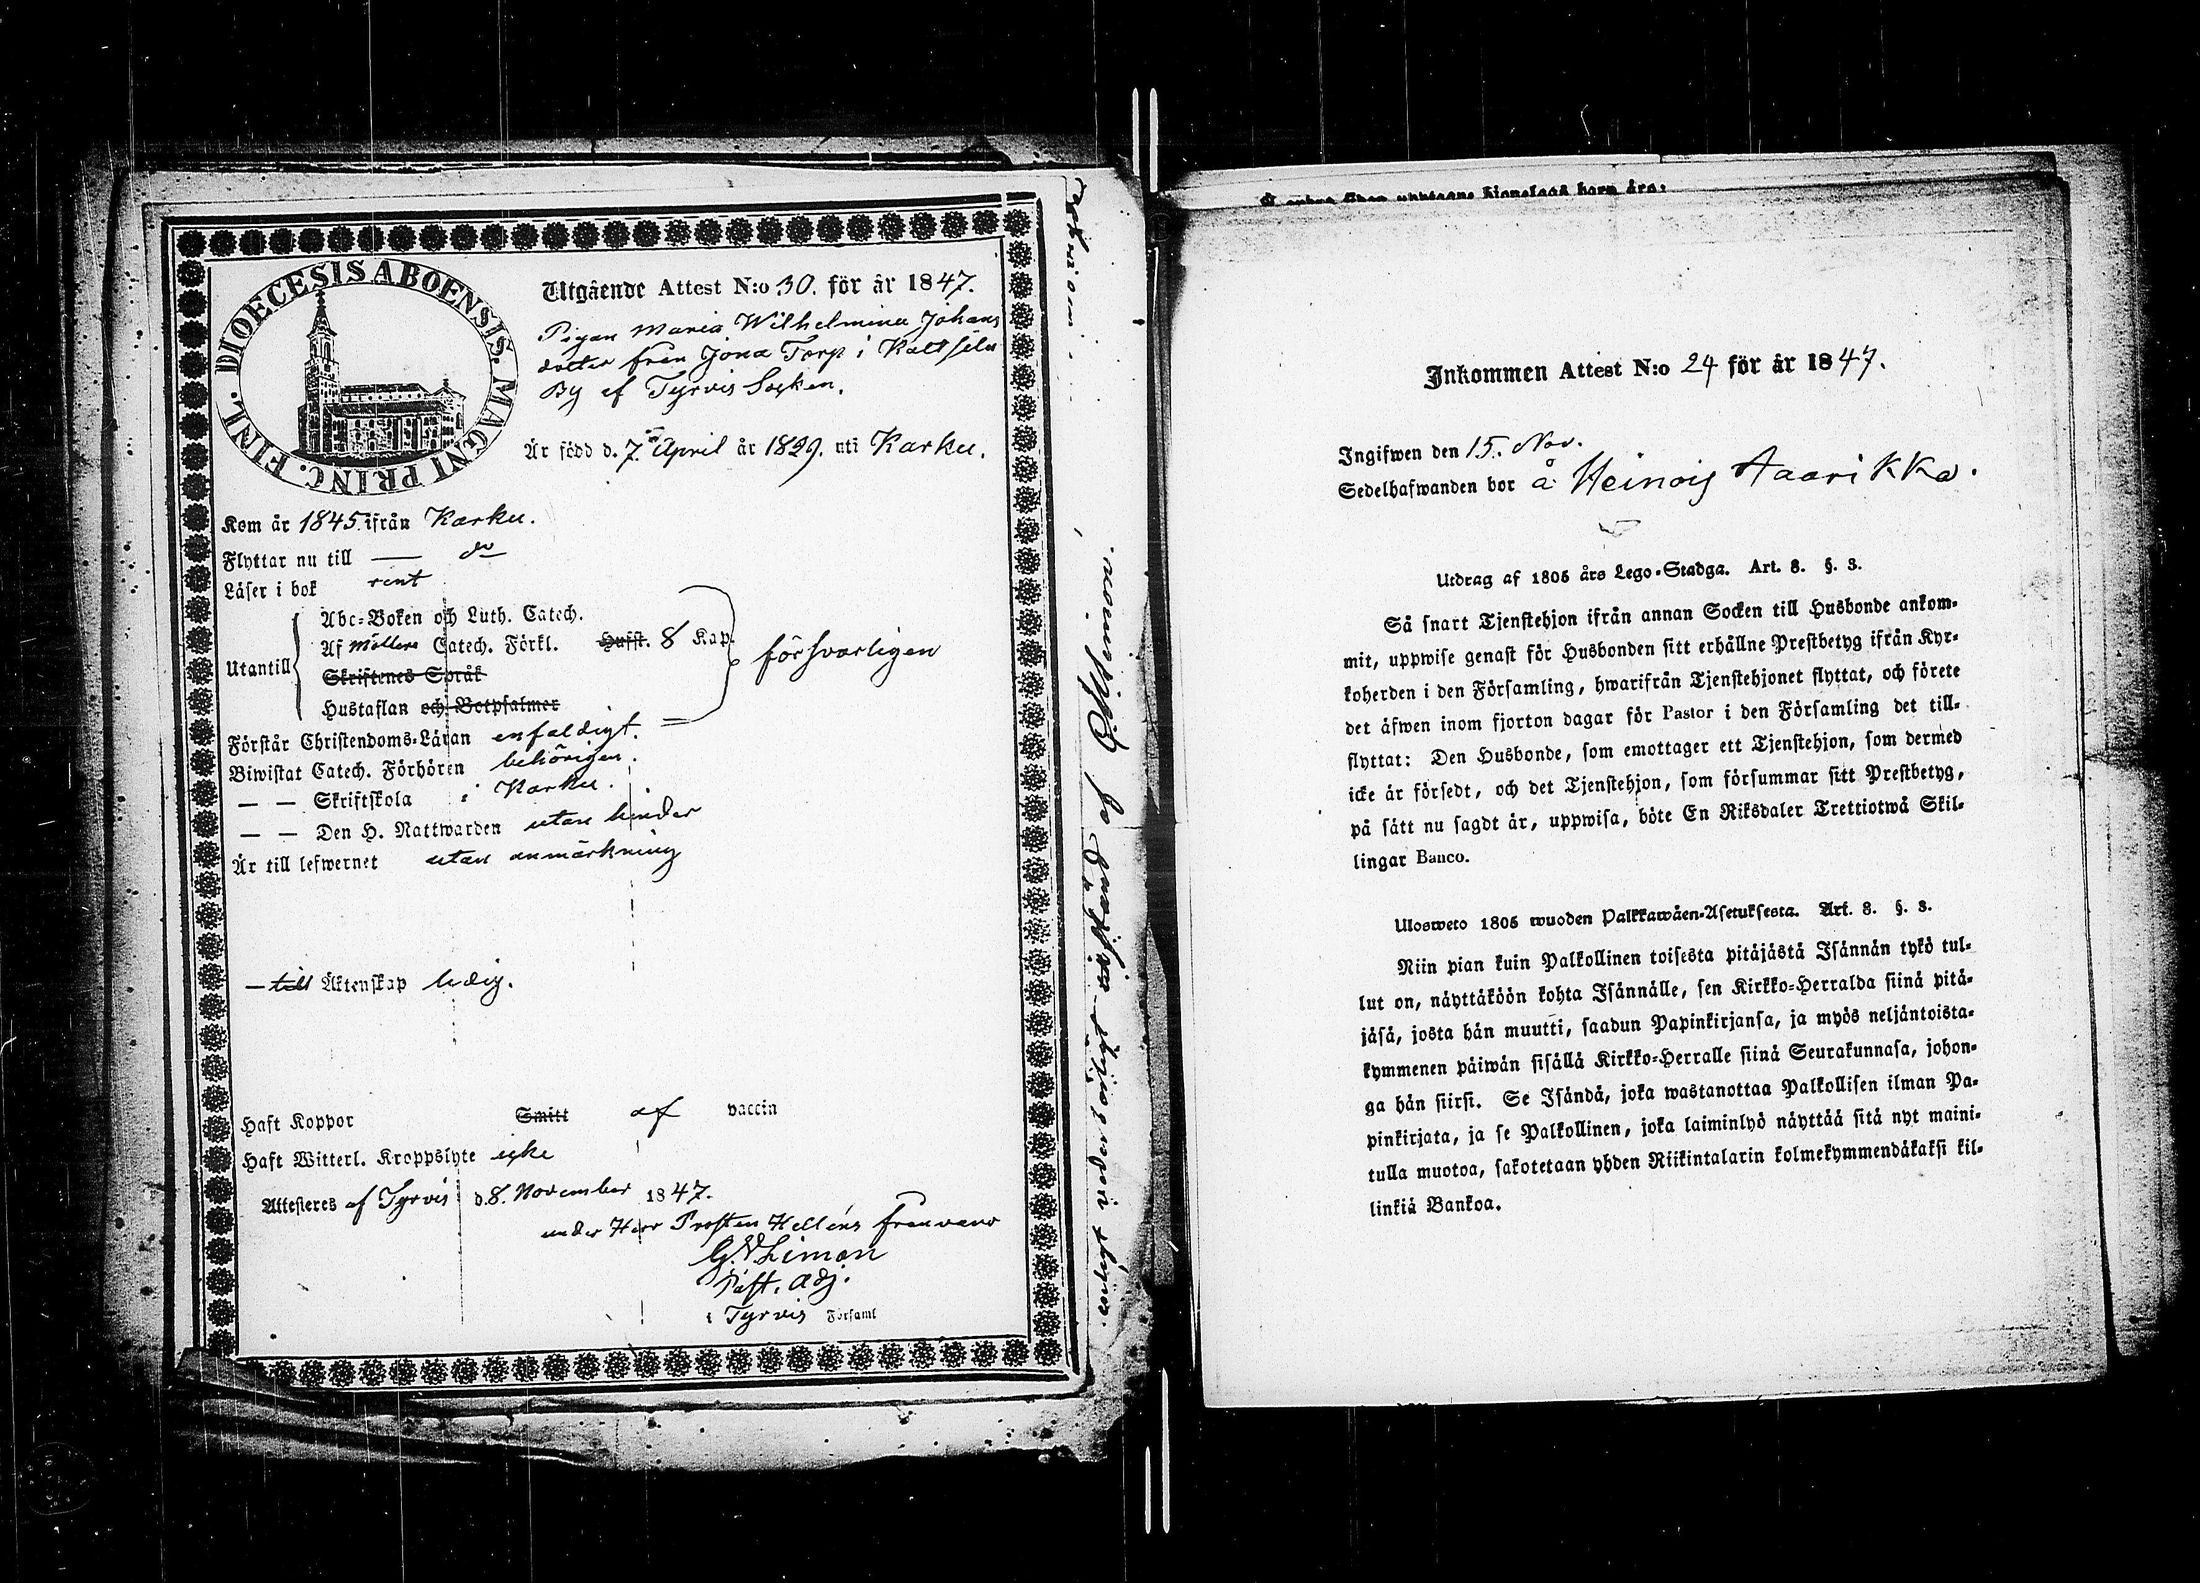 DIOECESIS ABOENSIS. MAGNI PRINC. FINL.
Utgående Attest N:o 30. för år 1847.
Pigan Maria Wilhelmina Johans
dotter från Jona Torp i
By af Tyrvis Socken.
Är född d. 7 April år 1829. uti Karku.
Kom år 1845. ifrån Karku.
Flyttar nu till — do
Läser i bok rent
Utantill
Abc-Boken och Luth. Catech.
Af Möllers Catech. Förkl. Hufst. 8 Kap.
Skriftenes Språk
Hustaflan och Botpsalmer
försvarligen
Förstår Christendoms-Läran enfaldigt.
Biwistat Catech. Förhören behörigen.
— — Skriftskola i Karku.
— — Den H. Nattwarden utan hinder
Är till lefwernet utan anmärkning
— till Äktenskap ledig.
Haft Koppor Smitt af vaccin
Haft Witterl. Kroppslyte icke
Attesteres af Tyrvis d. 8. November 1847.
under Herr Prosten Helléns franvaro
Limon
Past. Adj.
i Tyrvis Församl
Inkommen Attest N:o 24 för år 1847.
Ingifwen den 15. Nov.
Sedelhafwanden bor å Heinois Aarikka.
Utdrag af 1805 års Lego-Stadga. Art. 8. §. 3.
Så snart Tjenstehjon ifrån annan Socken till Husbonde ankom-
mit, uppwise genast för Husbonden sitt erhållne Prestbetyg ifrån Kyr-
koherden i den Församling, hwarifrån Tjenstehjonet flyttat, och förete
det äfwen inom fjorton dagar för Pastor i den Församling det till-
flyttat: Den Husbonde, som emottager ett Tjenstehjon, som dermed
icke är försedt, och det Tjenstehjon, som försummar sitt Prestbetyg,
på sätt nu sagdt är, uppwisa, böte En Riksdaler Trettiotwå Skil-
lingar Banco.
Ulosweto 1805 wuoden Palkkawäen-Asetuksesta. Art. 8. §. 3.
Niin pian kuin Palkollinen toisesta pitäjästä Isännän tykö tul-
lut on, näyttäköön kohta Isännälle, sen Kirkko-Herralda siinä pitä-
jäsä, josta hän muutti, saadun Papinkirjansa, ja myös neljäntoista-
kymmenen päiwän sisällä Kirkko-Herralle siinä Seurakunnasa, johon-
ga hän siirsi. Se Isändä, joka wastanottaa Palkollisen ilman Pa-
pinkirjata, ja se Palkollinen, joka laiminlyö näyttää sitä nyt maini-
tulla muotoa, sakotetaan yhden Riikintalarin kolmekymmendäkaksi kil-
linkiä Bankoa.